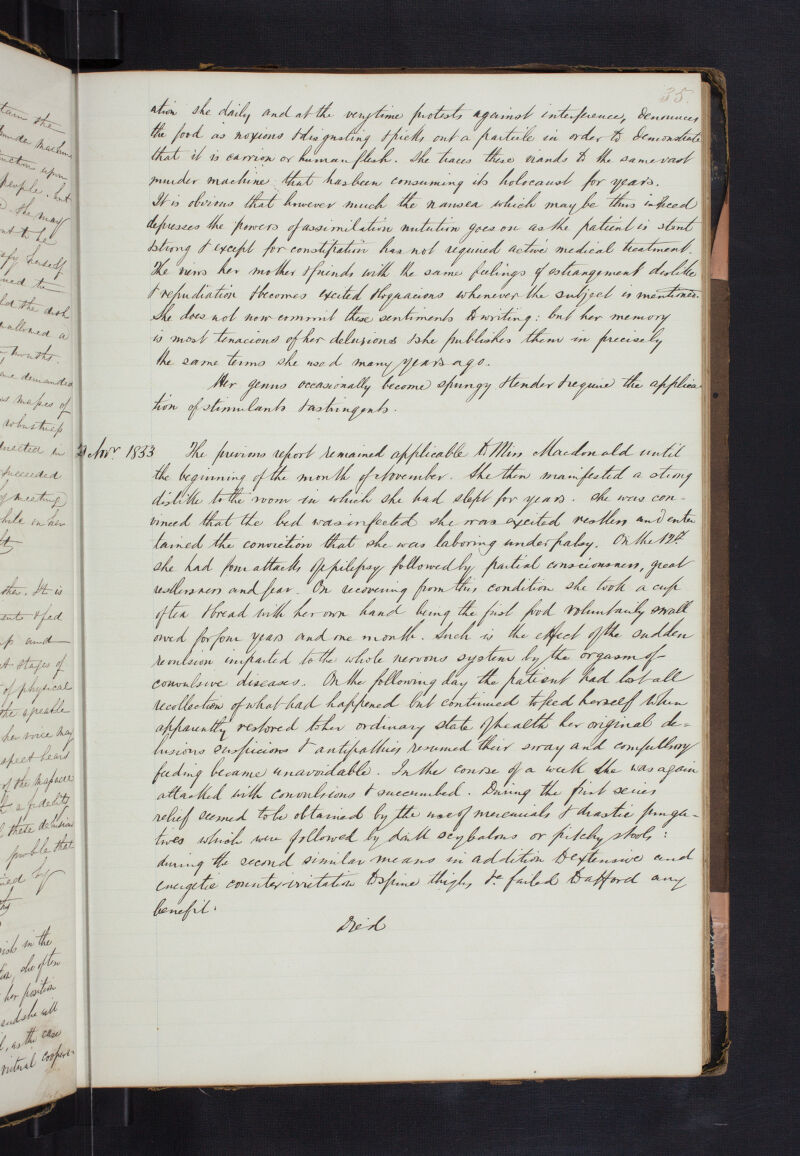 35.
ation she daily and at the very time protests against interference, denounces
the food as noxious & disgusting & picks out a particle in order to demonstrate
that it is carrion or human flesh. She traces these to the same vast
murder machine that has been consuming its holocaust for years.
It is obvious that however much the nausea which may be thus induced
depresses the powers of assimilation nutrition goes on as the patient is stout
& strong & except for constipation has not required active medical treatment.
She views her mother & friends with the same feelings of estrangement dislike
& repudiation & becomes excited & loquacious whenever the subject is mentioned.
She does not now commit these sentiments to writing: but her memory
is most tenacious of her delusions & she publishes them in precisely
the same terms she used many years ago.
Her gums occasionally become spungy & tender & require the applica-
tion of stimulants & astringents.
Novr. 1853 The previous report remained applicable to Miss Macdonald until
the beginning of the month of November. She then manifested a strong
dislike to the room in which she had slept for years. She was con-
vinced that the bed was infected she was excited restless and enter
tained the conviction that she was laboring under palsy. On the 12th
she had four attacks of epilepsy followed by partial consciousness, great
restlessness and fear. On recovering from this condition she took a cup
of tea & bread with her own hand being the first food voluntarily swall
owed for four years and one month. Such is the effect of the sudden
revulsion imparted to the whole nervous system by the orgasm of
convulsive diseases. On the following day the patient had lost all
recollection of what had happened but continued to feed herself. When
apparently restored to her ordinary state of health her original de-
lusions suspicions & antipathies resumed their sway and compulsory
feeding became unavoidable. In the course of a week she was again
attacked with convulsions & succumbed. During the first series
relief seemed to be obtained by the use of mercurials & drastic purga-
tives which were followed by dark scybalous or pitchy stools:
during the second similar means in addition to extensive and
energetic counter-irritation to spine thighs &c failed to afford any
benefit.
Died